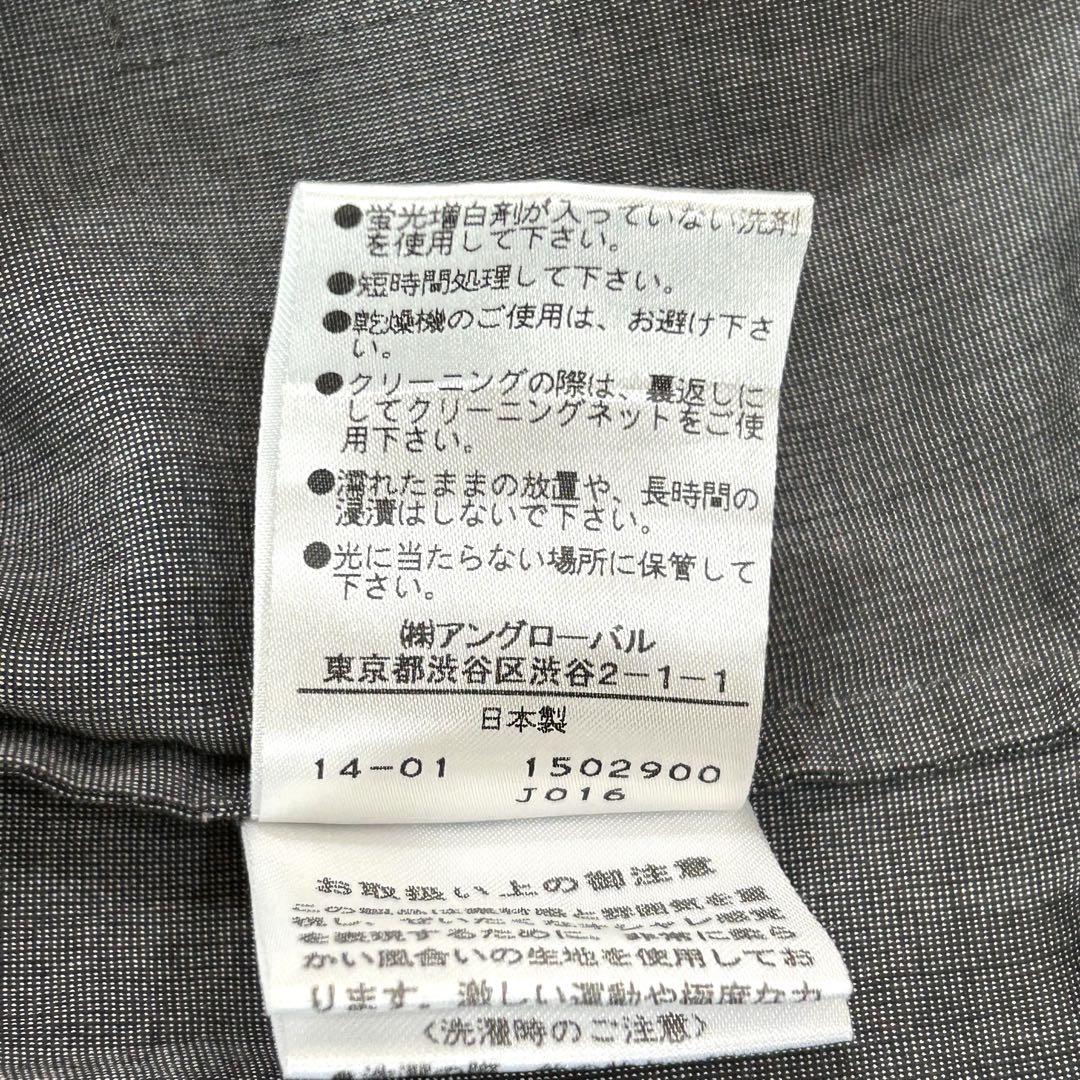 ●蛍光増白剤が入っていない洗剤
を使用して下さい。
●短時間処理して下さい。
●乾燥機のご使用は、お避け下さ
い。
●クリーニングの際は、裏返しに
してクリーニングネットをご使
用下さい。
●濡れたままの放置や、長時間の
浸漬はしないで下さい。
●光に当たらない場所に保管して
下さい。
㈱アングローバル
東京都渋谷区渋谷2-1-1
日本製
14-01 1502900
J016
お取扱い上の御注意
を表現するために、非常に柔ら
かい風合いの生地を使用してお
ります。激しい運動や極度な力
〈洗濯時のご注意〉